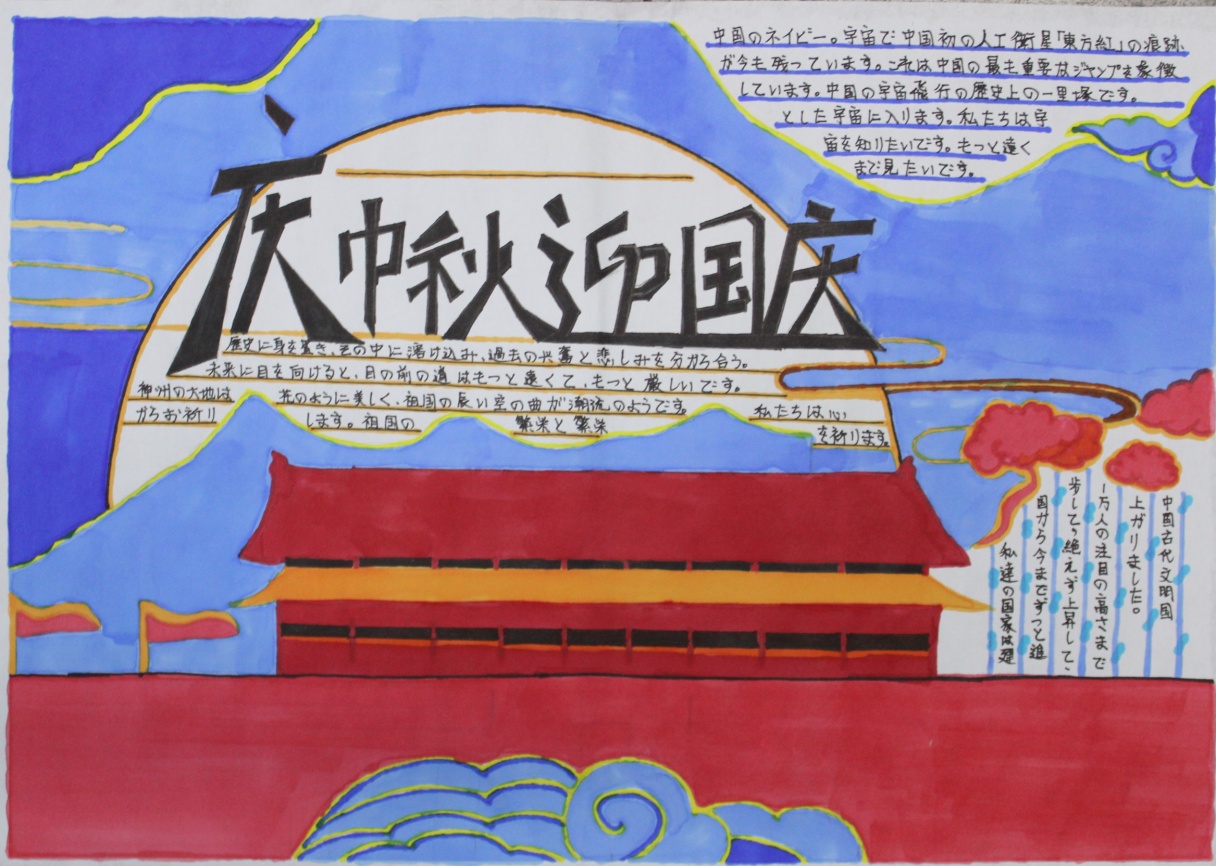 中国のネイビー。宇宙で中国初の人工衛星「東方紅」の痕跡
が今も残っています。これは中国の最も重要なジャンプを象徴
しています。中国の宇宙飛行の歴史上の一里塚です。
とした宇宙に入ります。私たちは宇
宙を知りたいです。もっと遠く
まで見たいです。
庆中秋迎国庆
歴史に身を置き、その中に溶け込み、過去の興奮と悲しみを分から合う。
未来に目を向けると、目の前の道はもっと遠くて、もっと厳しいです。
神州の大地は 花のように美しく、祖国の長い空の曲が潮流のようです。 私たちは心
からお祈り します。祖国の 繁栄と繁栄 を祈ります。
中国古代文明国
上がりました。
1万人の注目の高さまで
歩して、絶えず上昇して、
国から今まですっと進
私達の国家は